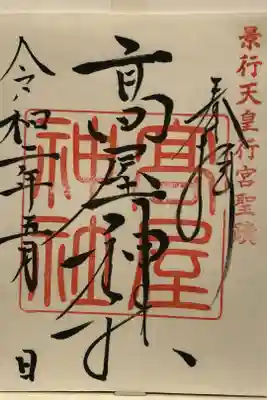 景行天皇行宮聖蹟
奉拝
高屋神社
高屋
神社
令和二年五月 日